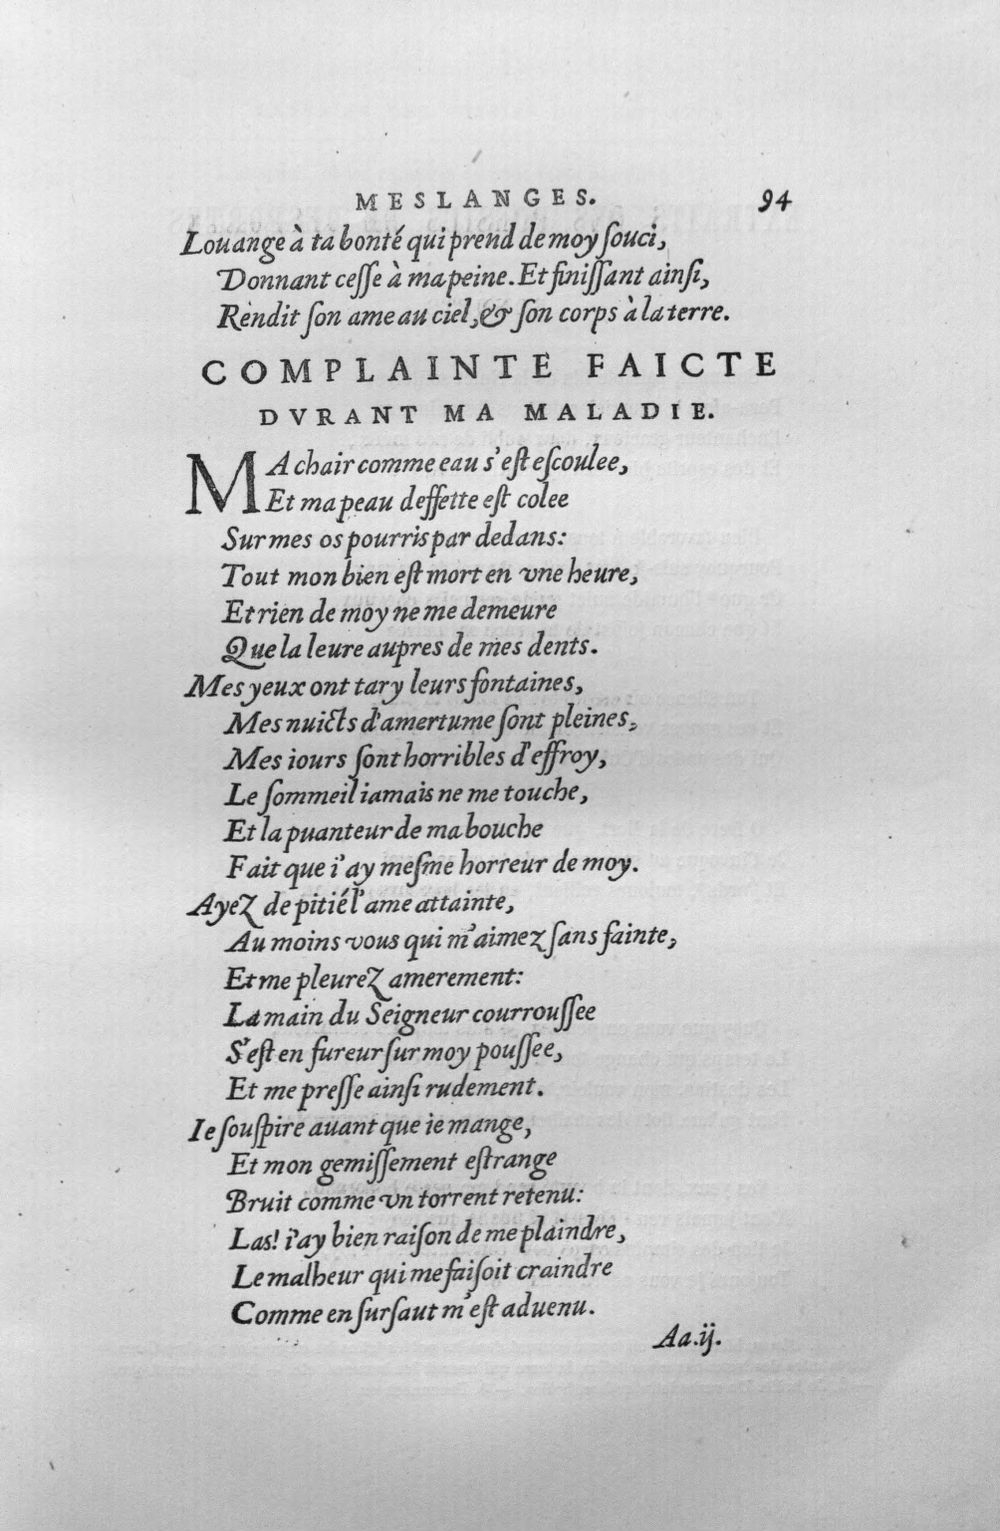 MESLANGES. 94
Louange à ta bonté qui prend de moy ſouci,
Donnant ceſſe à ma peine. Et finiſſant ainſi,
Rendit ſon ame au ciel, & ſon corps à la terre.
COMPLAINTE FAICTE
DVRANT MA MALADIE.
MA chair comme eau s'eſt eſcoulee,
Et ma peau deffette eſt colee
Sur mes os pourris par dedans:
Tout mon bien eſt mort en vne heure,
Et rien de moy ne me demeure
Que la leure aupres de mes dents.
Mes yeux ont tary leurs fontaines,
Mes nuicts d'amertume ſont pleines,
Mes iours ſont horribles d'effroy,
Le ſommeil iamais ne me touche,
Et la puanteur de ma bouche
Fait que i'ay meſme horreur de moy.
Ayez de pitié l'ame attainte,
Au moins vous qui m'aimez ſans fainte,
Et me pleurez amerement:
La main du Seigneur courrouſſee
S'eſt en fureur ſur moy pouſſee,
Et me preſſe ainſi rudement.
Ie ſouſpire auant que ie mange,
Et mon gemiſſement eſtrange
Bruit comme vn torrent retenu:
Las! i'ay bien raiſon de me plaindre,
Le malheur qui me faiſoit craindre
Comme en ſurſaut m'eſt aduenu.
Aa.ij.